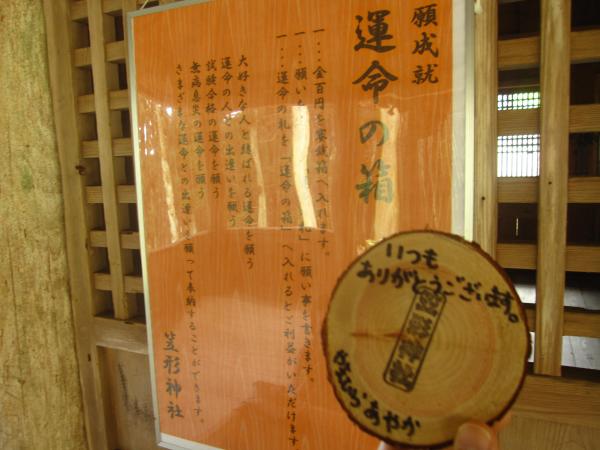 願成就
運命の箱
一・・・金百円を賽銭箱へ入れます。
一・・・願い 札」に願い事を書きます。
一・・・運命の札を「運命の箱」へ入れるとご利益がいただけます
大好きな人と結ばれる運命を願う
運命の人との出逢いを願う
試験合格の運命を願う
無病息災の運命を願う
さまざまな運命との出逢いを願って奉納することができます。
笠形神社
いつも
ありがとうございます。
笠形神社
あやか